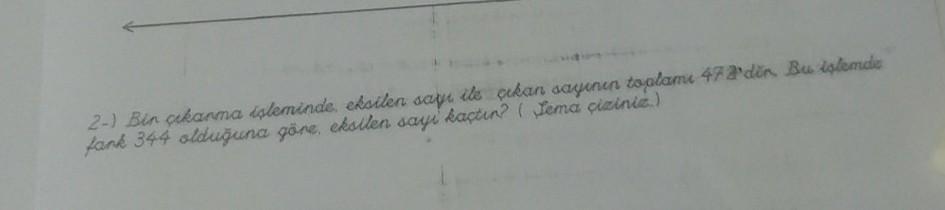 2-) Bir çıkarma işleminde, eksilen sayı ile çıkan sayının toplamı 472'dir. Bu işlemde
fark 344 olduğuna göre, eksilen sayı kaçtır? ( Şema çiziniz.)